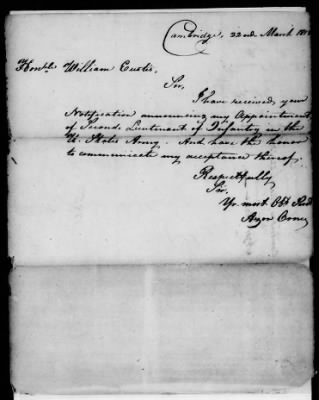 Cambridge, 22nd March
Honble William Eustis.
Sir,
I have received your
Notification announcing my Appointment
of Second Lieutenant of Infantry in the
U. States Army. And have the honor
to communicate my acceptance thereof.
Respectfully
Sir,
Yr most Obt Servt